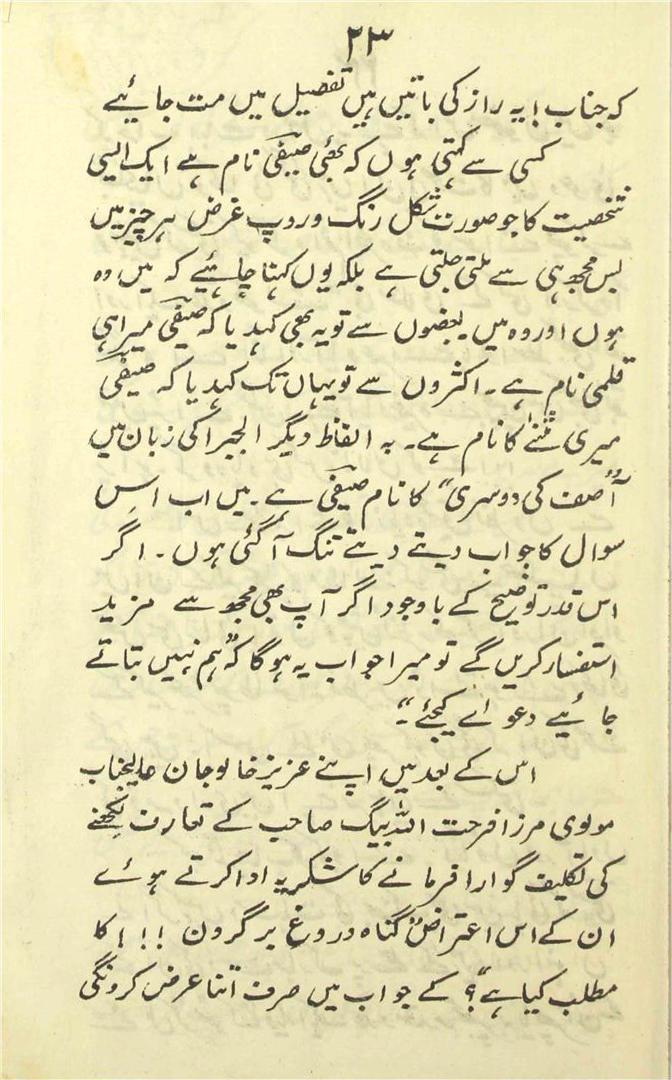 ۲۳
کہ جناب! یہ راز کی باتیں ہیں تفصیل میں مت جائیے
کسی سے کہتی ہوں کہ بھئی صیفی نام ہے ایک ایسی
شخصیت کا جو صورت شکل رنگ و روپ غرض ہر چیز میں
بس مجھ ہی سے ملتی جلتی ہے بلکہ یوں کہنا چاہئیے کہ میں وہ
ہوں اور وہ میں۔ بعضوں سے تو یہ بھی کہدیا کہ صیفی میرا ہی
قلمی نام ہے۔ اکثروں سے تو یہاں تک کہدیا کہ صیفی
میری مثنےٰ کا نام ہے۔ بہ الفاظ دیگر الجبرا کی زبان میں
"آصف کی دوسری" کا نام صیفی ہے۔ میں اب اس
سوال کا جواب دیتے دیتے تنگ آگئی ہوں۔ اگر
اس قدر توضیح کے باوجود اگر آپ بھی مجھ سے مزید
استفسار کریں گے تو میرا جواب یہ ہوگا کہ "ہم نہیں بتاتے
جائیے دعوا ے کیجئے"۔
اس کے بعد میں اپنے عزیز خالوجان عالیجناب
مولوی مرزا فرحت اللہ بیگ صاحب کے تعارف لکھنے
کی تکلیف گوارا فرمانے کا شکریہ ادا کرتے ہوئے
ان کے اس اعتراض "گناہ دروغ برگردن !!! کا
مطلب کیا ہے"؟ کے جواب میں صرف اتنا عرض کرونگی